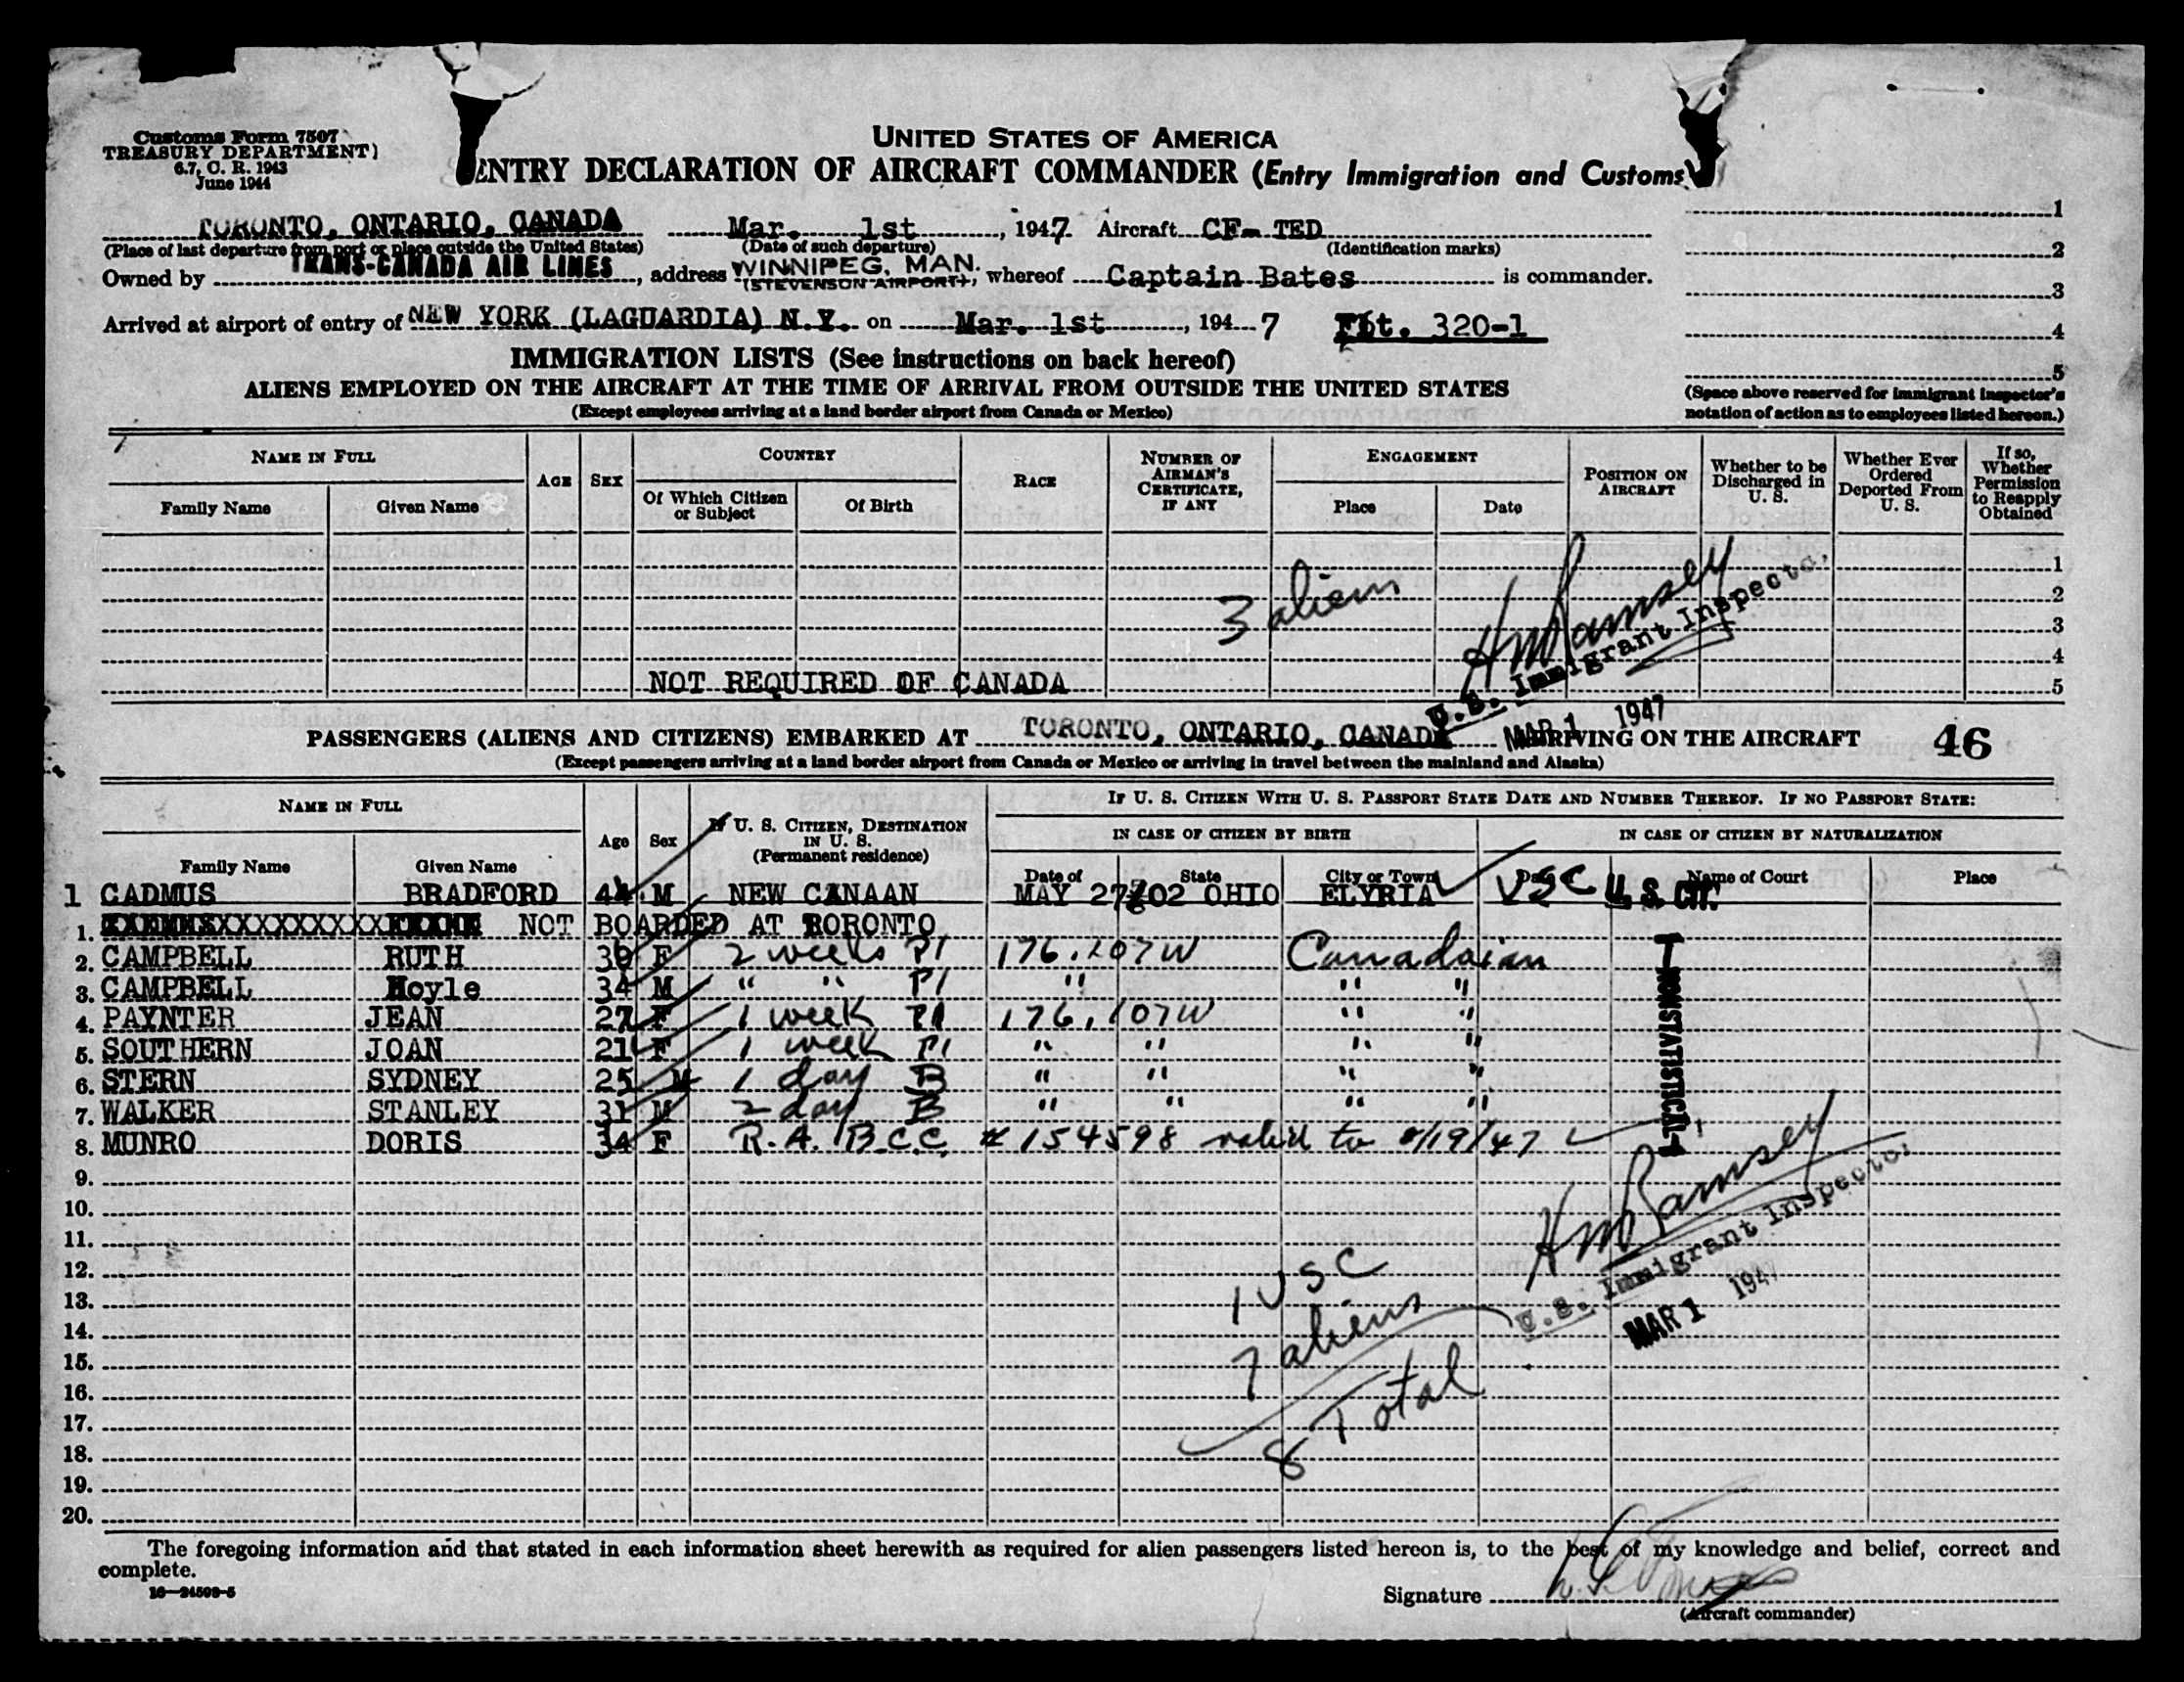 Customs Form 7507
TREASURY DEPARTMENT)
6.7, C. R. 1943
June 1944
UNITED STATES OF AMERICA
ENTRY DECLARATION OF AIRCRAFT COMMANDER (Entry Immigration and Customs)
TORONTO, ONTARIO, CANADA Mar. 1st, 1947 Aircraft CF- TED
(Place of last departure from port or place outside the United States) (Date of such departure) (Identification marks)
Owned by TRANS-CANADA AIR LINES, address WINNIPEG, MAN. (STEVENSON AIRPORT), whereof Captain Bates is commander.
Arrived at airport of entry of NEW YORK (LAGUARDIA) N.Y. on Mar. 1st, 1947 Flt. 320-1
1
2
3
4
5
(Space above reserved for immigrant inspector's notation of action as to employees listed hereon.)
IMMIGRATION LISTS (See instructions on back hereof)
ALIENS EMPLOYED ON THE AIRCRAFT AT THE TIME OF ARRIVAL FROM OUTSIDE THE UNITED STATES
(Except employees arriving at a land border airport from Canada or Mexico)
NAME IN FULL
Family Name Given Name
AGE SEX
COUNTRY
Of Which Citizen or Subject Of Birth
RACE
NUMBER OF AIRMAN'S CERTIFICATE, IF ANY
ENGAGEMENT
Place Date
POSITION ON AIRCRAFT
Whether to be Discharged in U. S.
Whether Ever Ordered Deported From U. S.
If so, Whether Permission to Reapply Obtained
1
2
3
4
5
3 aliens
HM Ramsey
U.S. Immigrant Inspector
MAR 1 1947
NOT REQUIRED OF CANADA
PASSENGERS (ALIENS AND CITIZENS) EMBARKED AT TORONTO, ONTARIO, CANADA ARRIVING ON THE AIRCRAFT 46
(Except passengers arriving at a land border airport from Canada or Mexico or arriving in travel between the mainland and Alaska)
NAME IN FULL
Family Name Given Name
Age Sex
IF U. S. CITIZEN, DESTINATION IN U. S. (Permanent residence)
IF U. S. CITIZEN WITH U. S. PASSPORT STATE DATE AND NUMBER THEREOF. IF NO PASSPORT STATE:
IN CASE OF CITIZEN BY BIRTH IN CASE OF CITIZEN BY NATURALIZATION
Date of State City or Town Name of Court Place
1 CADMUS BRADFORD 44 M NEW CANAAN MAY 27/02 OHIO ELYRIA USC U. S. CIT.
1. NOT BOARDED AT TORONTO
2. CAMPBELL RUTH F 2 weeks P1 176.207W Canadaian
3. CAMPBELL Hoyle 34 M " " P1 " " "
4. PAYNTER JEAN 27 F 1 week P1 176.107W " "
5. SOUTHERN JOAN 21 F 1 week P1 " " " "
6. STERN SYDNEY 25 M 1 day B " " " "
7. WALKER STANLEY 31 M 2 day B " " " "
8. MUNRO DORIS 34 F R.A. B.C.C. # 154598 valid to 8/19/47
NONSTATISTICAL
9.
10.
11.
12.
13.
14.
15.
16.
17.
18.
19.
20.
HM Ramsey
U.S. Immigrant Inspector
MAR 1 1947
1 USC
7 aliens
8 Total
The foregoing information and that stated in each information sheet herewith as required for alien passengers listed hereon is, to the best of my knowledge and belief, correct and
complete.
16—24598-5
Signature
(Aircraft commander)